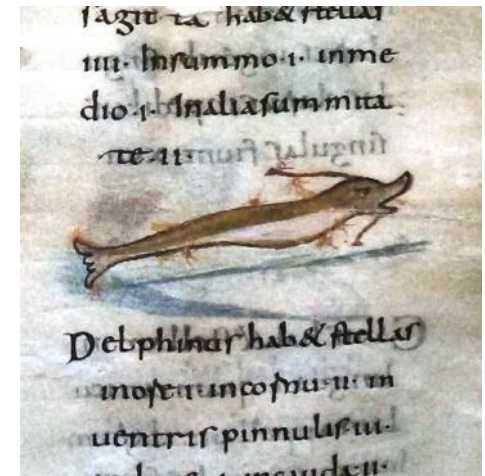 sagit ta hab& stellas
iiii· Insummo·i· inme
dio·i· Inaliasummita
te·ii·
Delphinus hab& stellas
inore·i· incornu·ii· in
uentris pinnulis·iii·